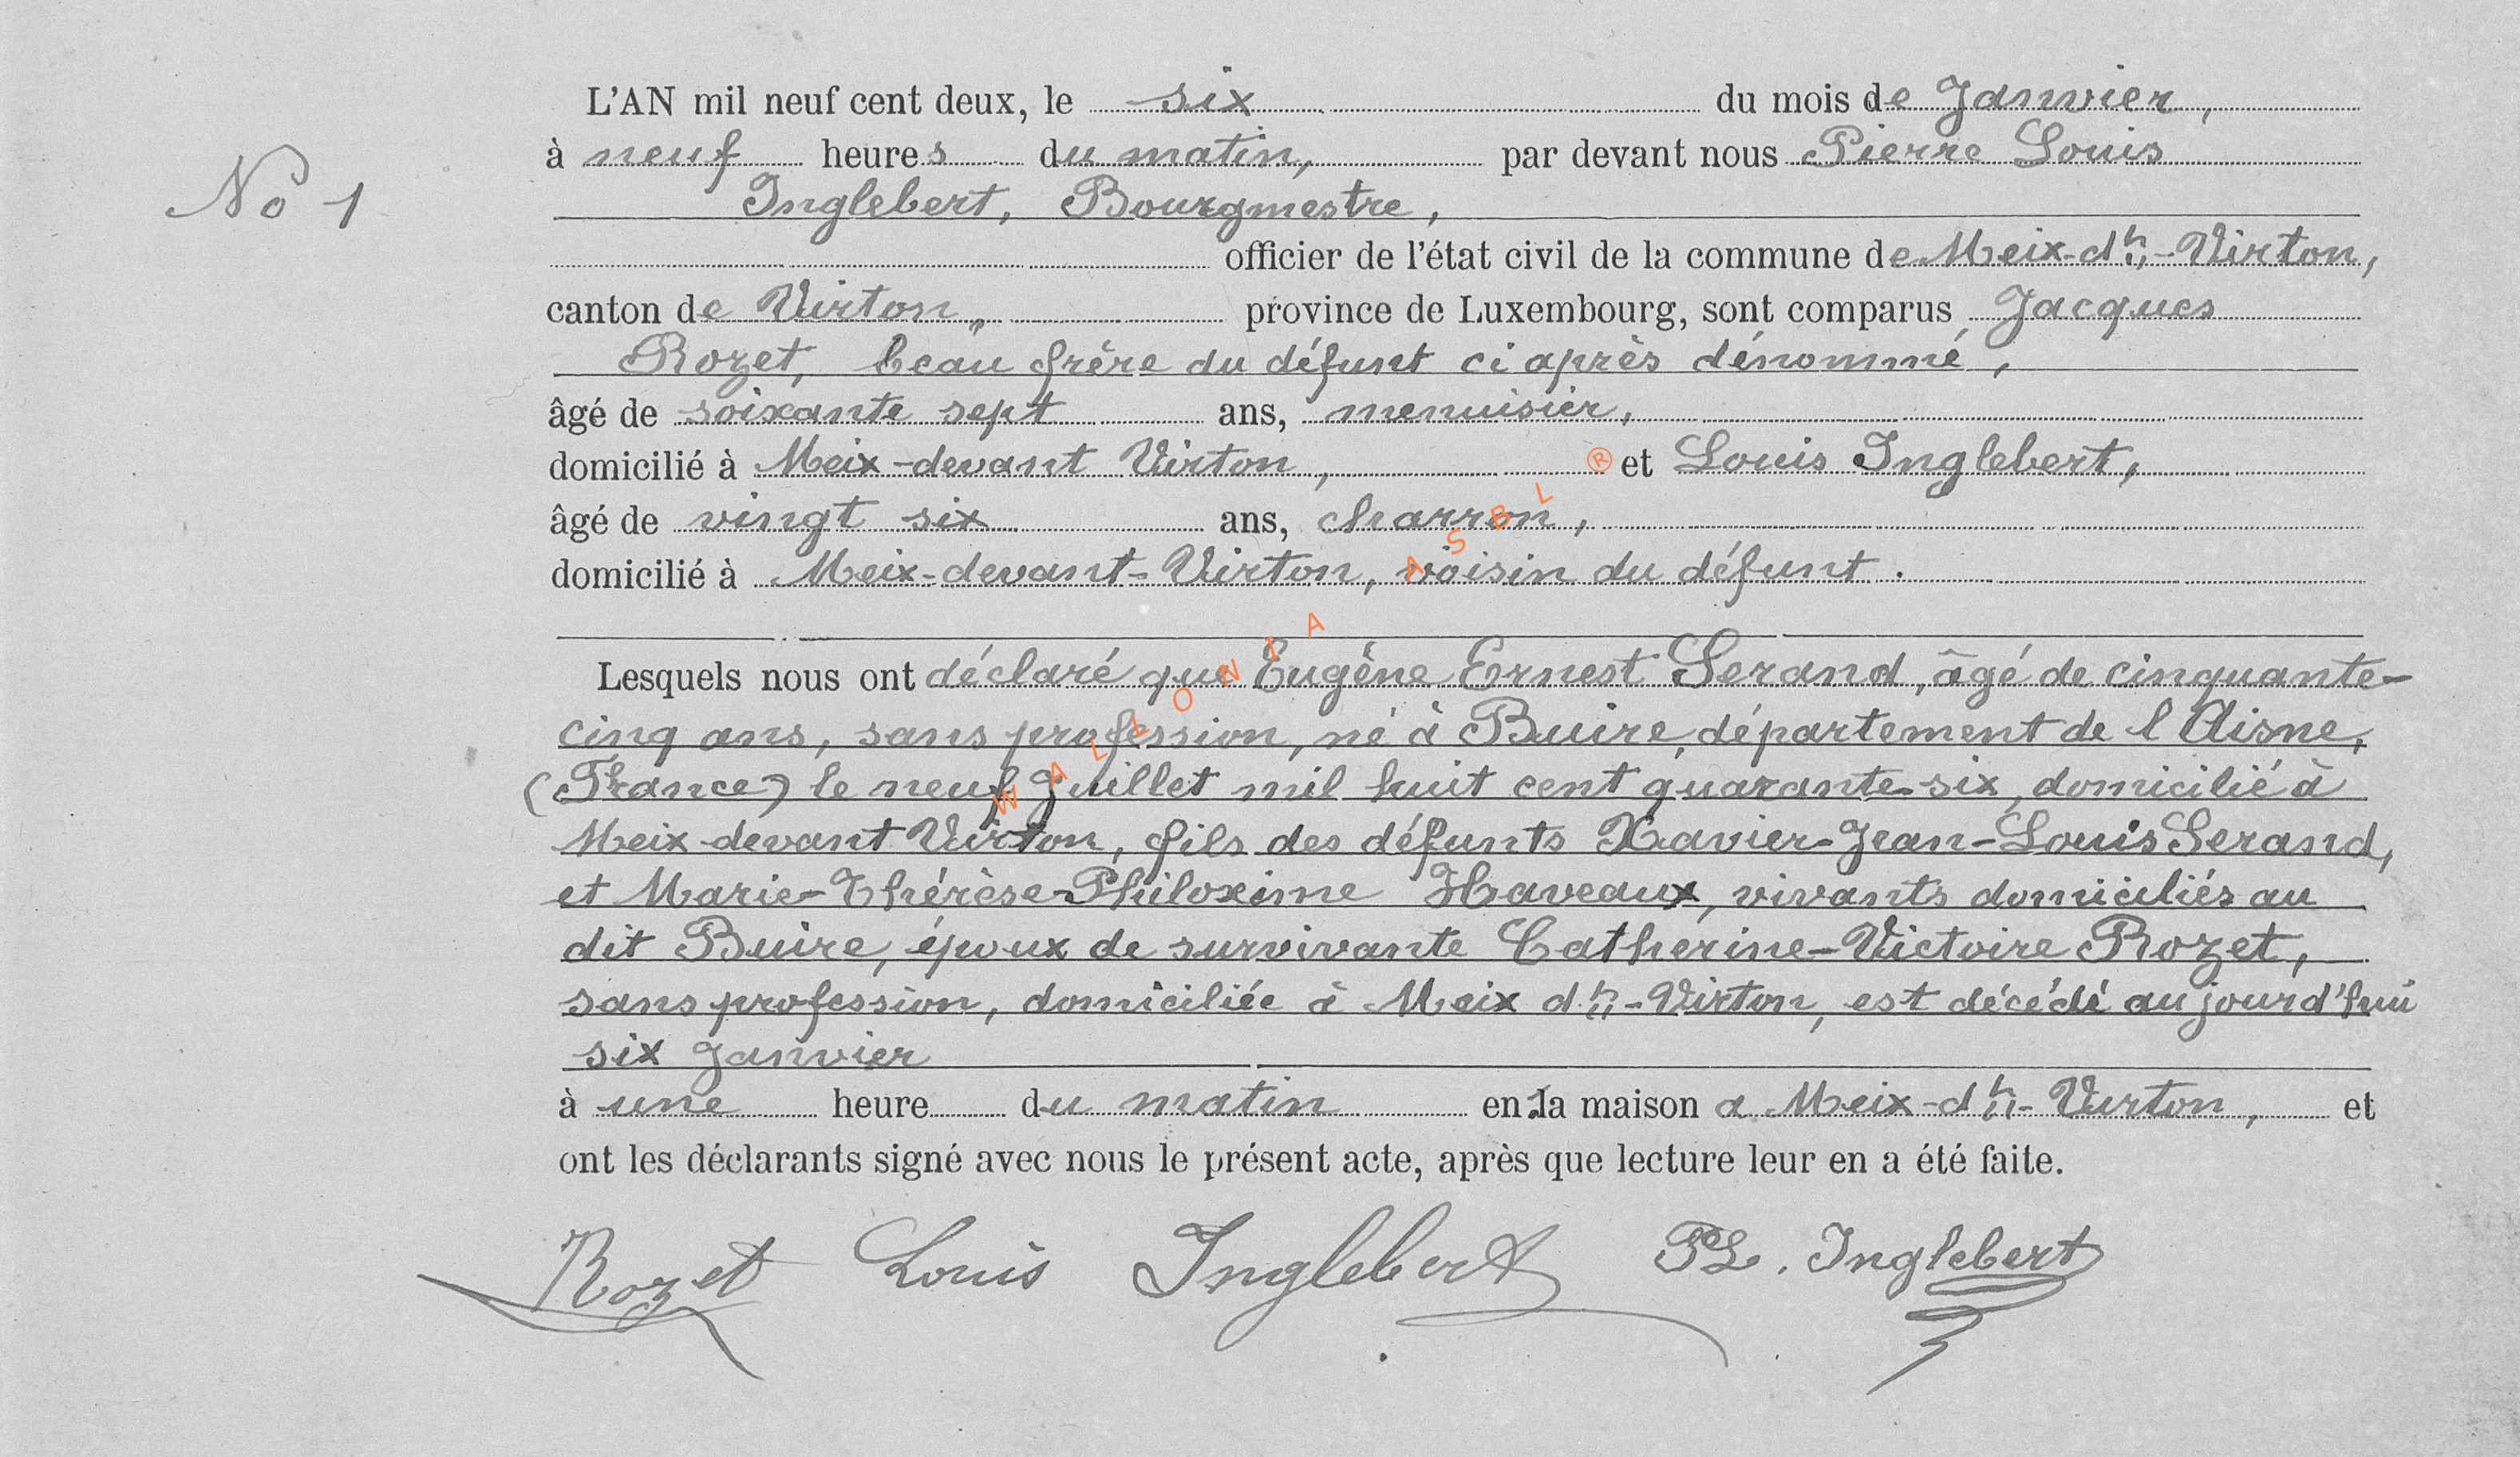 L'AN mil neuf cent deux, le six du mois de Janvier,
No 1
à neuf heures du matin, par devant nous Pierre Louis
Inglebert, Bourgmestre,
officier de l'état civil de la commune de Meix-dt-Virton,
canton de Virton, province de Luxembourg, sont comparus Jacques
Rozet, beau frère du défunt ci après dénommé,
âgé de soixante sept ans, menuisier,
domicilié à Meix-devant Virton, et Louis Inglebert,
âgé de vingt six ans, charron,
domicilié à Meix-devant-Virton, voisin du défunt.
Lesquels nous ont déclaré que Eugène Ernest Lerand, âgé de cinquante-
cinq ans, sans profession, né à Buire, département de l'Aisne,
(France) le neuf Juillet mil huit cent quarante-six, domicilié à
Meix-devant Virton, fils des défunts Xavier-Jean-Louis Lerand,
et Marie-Thérèse-Philoxime Haveaux, vivants domiciliés au
dit Buire, époux de survivante Catherine-Victoire Rozet,
sans profession, domiciliée à Meix dt-Virton, est décédé aujourd'hui
six Janvier
à une heure du matin en la maison a Meix-dt-Virton, et
ont les déclarants signé avec nous le présent acte, après que lecture leur en a été faite.
Rozet Louis Inglebert PL. Inglebert
WALLONIA ASBL ®